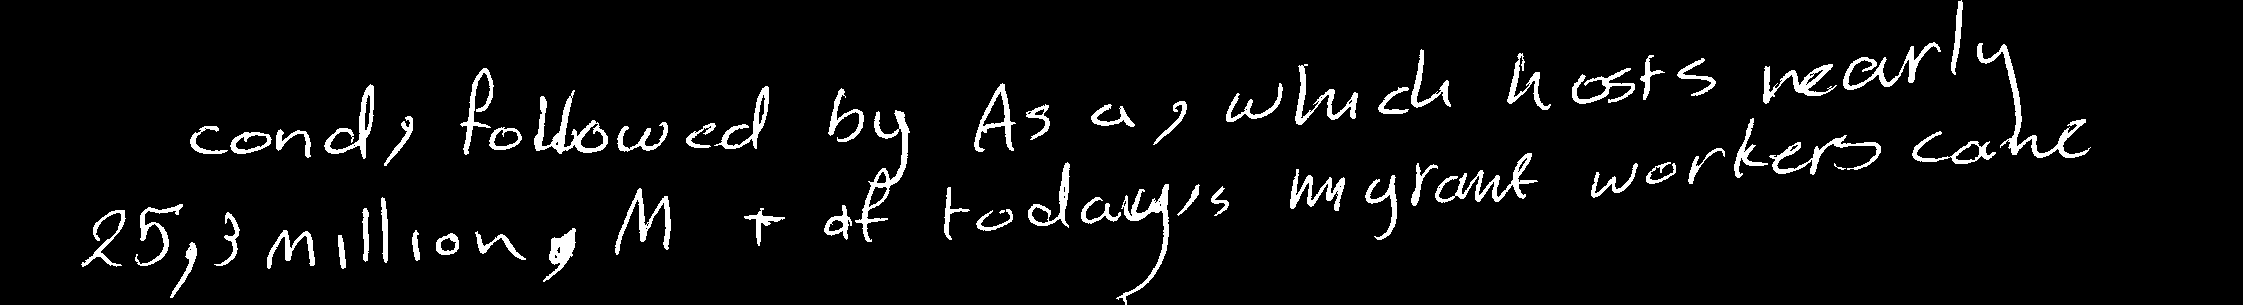 cond, followed by As a, which hosts nearly
25,3 million, M t of today,s migrant workers came